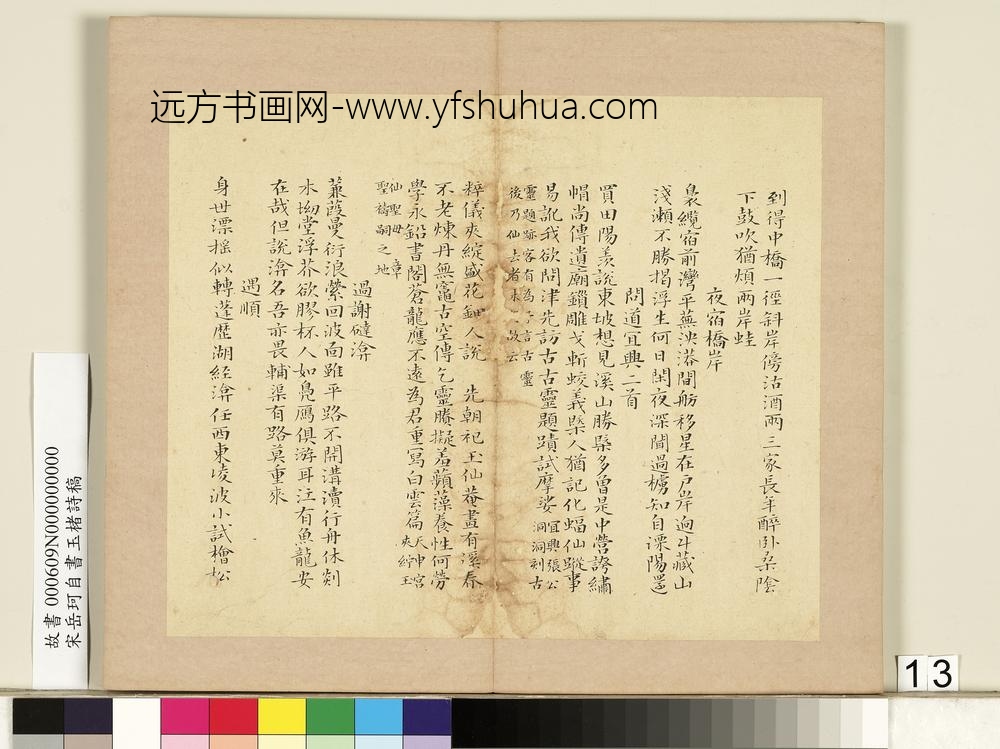 远方书画网-www.yfshuhua.com
到得中橋一徑斜岸傍沽酒兩三家長年醉卧桑陰
下鼓吹猶煩兩岸蛙
夜宿橋岸
裊纜宿前灣平蕪泱漭間舫移星在戶岸迴斗藏山
淺瀨不勝揭浮生何日閑夜深聞過櫓知自溧陽還
問道宜興二首
買田陽羨說東坡想見溪山勝槩多曾是中營誇繡
帽尚傳遺廟鎖雕戈斬蛟義槩人猶記化蝠仙蹤事
易訛我欲問津先訪古古靈題蹟試摩娑
宜興張公
洞洞刻古
靈題跡客有為予言古靈
後乃仙去者 故云
粹儀夾綻盛花鈿人說 先朝祀玉仙菴畫有溪春
不老煉丹無竈古空傳乞靈勝擬羞蘋藻養性何勞
學永鉛書閣蒼龍應不遠為君重寫白雲篇
天申宮
夾紵玉
仙聖母 章
聖禱嗣之地
過謝𡎺渰
蒹葭蔓衍浪縈回波面雖平路不開溝瀆行舟休剡
水坳堂浮芥欲膠杯人如鳧鴈俱游耳泣有魚龍安
在哉但說渰名吾亦畏輔渠有路莫重來
遇順
身世漂摇似轉蓬歷湖經渰任西東凌波小試檜松
故書 000609N000000000
宋岳珂自書玉楮詩稿
13